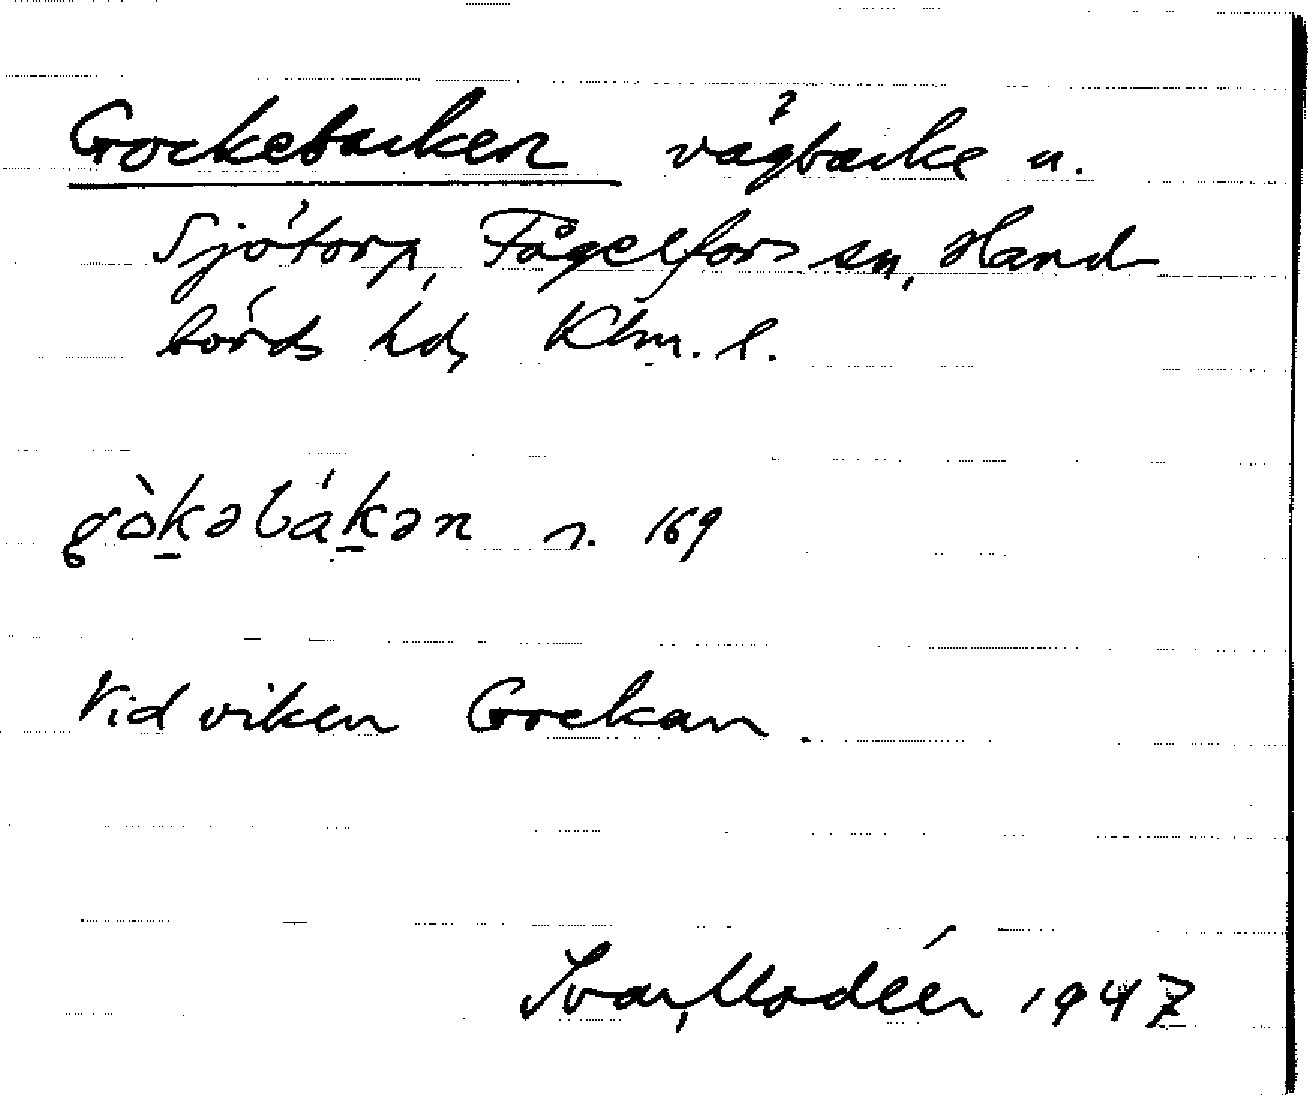 Gockebacken vägbacke u.
Sjötorp, Fågelfors sn, Hand
börds hd, Klm. l.
gòkəbákən s. 169
Vid viken Gockan.
Ivar Modéer 1947